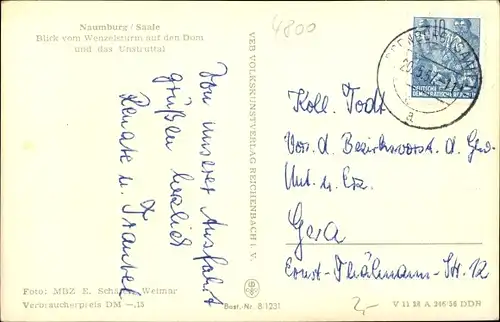 Naumburg / Saale
Blick vom Wenzelsturm auf den Dom
und das Unstruttal
4800
Von unserer Ausfahrt
grüßen herzlich
Renate u. Traudel
VEB VOLKSKUNSTVERLAG REICHENBACH I. V.
10
DEUTSCHE
DEMOKRATISCHE
a
Koll. Todt
Vors. d. Bezirksvorst. d. Gew.
Unt. u. Erz.
Gera
Ernst-Thälmann-Str. 12
2,-
Foto: MBZ E. Schäfer, Weimar
Verbraucherpreis DM -,15
Best.-Nr. 8/1231
V 11 28 A 246/56 DDR